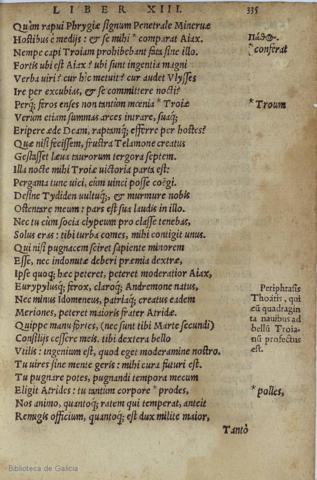 LIBER XIII. 335
Quòm rapui Phrygiæ signum Penetrale Mineruæ
Hostibus è medijs: & se mihi * comparat Aiax.
Nempe capi Troiam prohibebant fata sine illo.
Fortis ubi est Aiax? ubi sunt ingentia magni
Verba uiri? cur hîc metuit? cur audet Vlysses
Ire per excubias, & se committere nocti?
Perq; feros enses non tantùm mœnia * Troiæ
Verùm etiam summas arces intrare, suaq;
Eripere æde Deam, raptamq; efferre per hostes?
Quæ nisi fecissem, frustra Telamone creatus
Gestasset læua taurorum tergora septem.
Illa nocte mihi Troiæ uictoria parta est:
Pergama tunc uici, cùm uinci posse coëgi.
Desine Tydiden uultuq;, & murmure nobis
Ostentare meum: pars est sua laudis in illo.
Nec tu cùm socia clypeum pro classe tenebas,
Solus eras: tibi turba comes, mihi contigit unus.
Qui nisi pugnacem sciret sapiente minorem
Esse, nec indomitæ deberi præmia dextræ,
Ipse quoq; hæc peteret, peteret moderatior Aiax,
Eurypylusq; ferox, claroq; Andremone natus,
Nec minus Idomeneus, patriaq; creatus eadem
Meriones, peteret maioris frater Atridæ.
Quippe manu fortes, (nec sunt tibi Marte secundi)
Consilijs cessere meis. tibi dextera bello
Vtilis: ingenium est, quod eget moderamine nostro.
Tu uires sine mente geris: mihi cura futuri est.
Tu pugnare potes, pugnandi tempora mecum
Eligit Atrides: tu tantùm corpore * prodes,
Nos animo, quantoq; ratem qui temperat, anteit
Remigis officium, quantoq; est dux milite maior,
Tantò
* conferat
* Troum
Periphrasis
Thoatis, qui
cū quadragin
ta nauibus ad
bellū Troia-
nū profectus
est.
* polles,
Biblioteca de Galicia